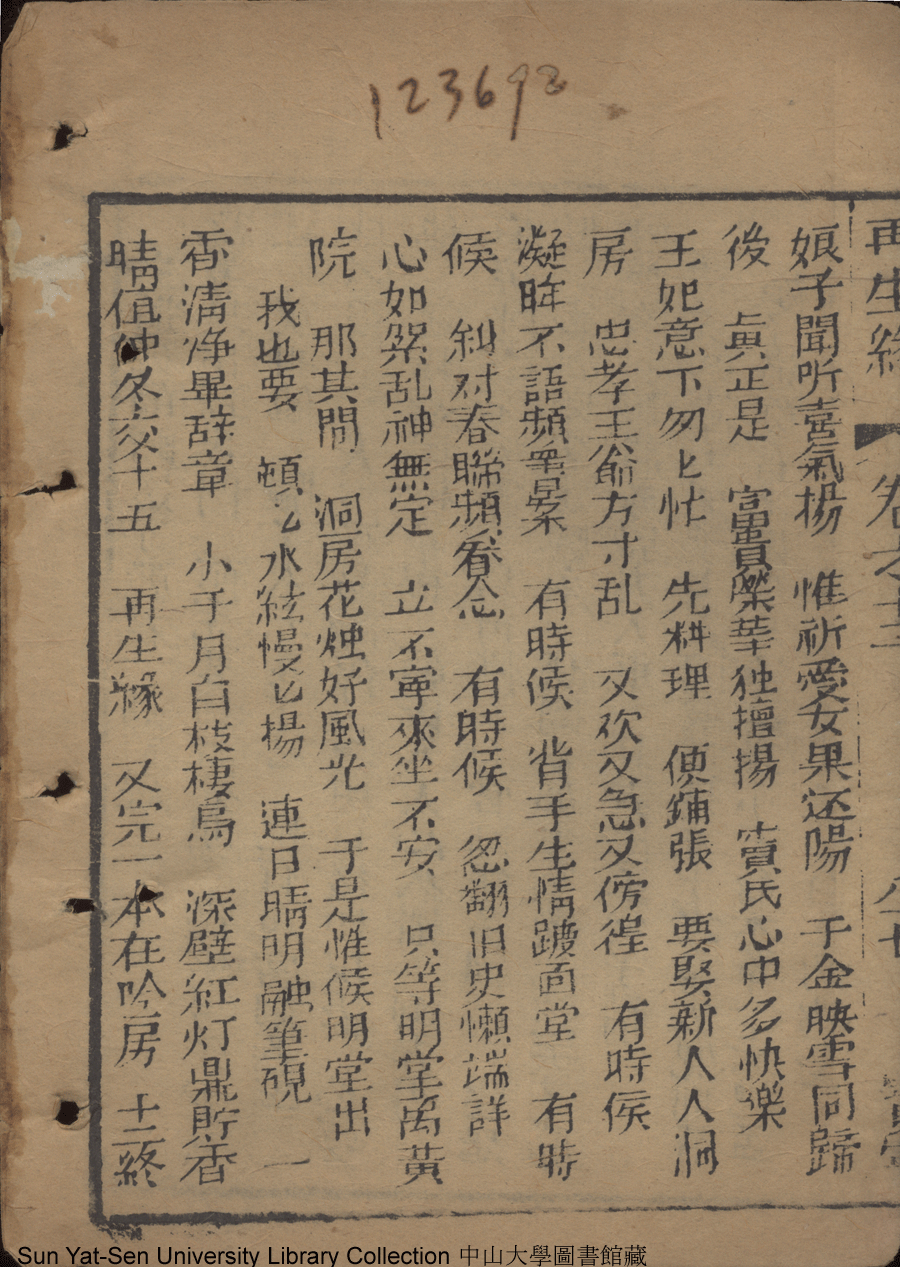 123698
再生緣 卷之十二
娘子聞听喜氣揚 惟祈愛女果还陽 千金映雪同歸
後 眞正是 富貴榮華独擅揚 賁氏心中多快樂
王妃意下匆匕忙 先料理 便鋪張 要娶新人人洞
房 忠孝王爺方寸乱 又欢又急又傍徨 有時侯
凝眸不語頻 有時候 背手生情踱面堂 有時
候 糾对春聯頻看念 有時候 忽翻旧史懶端詳
心如絮乱神無定 立不寕來坐不安 只等明堂离黃
院 那其間 洞房花烛好風光 于是惟候明堂出
我也要 頓匕水絃慢匕揚 連日晴明融筆硯 一
香清净畢辞章 小于月白枝棲鳥 深壁紅灯鼎貯香
晴值仲冬交十五 再生緣 又完一本在吟房 十二終
Sun Yat-Sen University Library Collection 中山大學圖書館藏